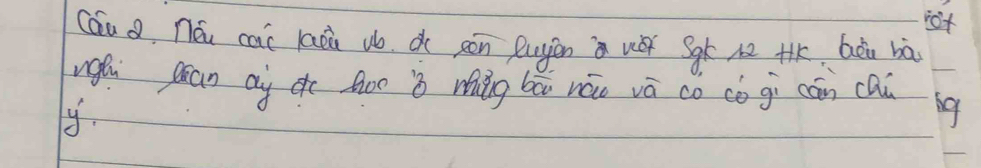 Câu 2. Nêu các kiểu vb. đc rèn luyện ở viết Sgk 12 HK.
nghị ấy đc học ở những bài nào và có có gì cần chú
ý.